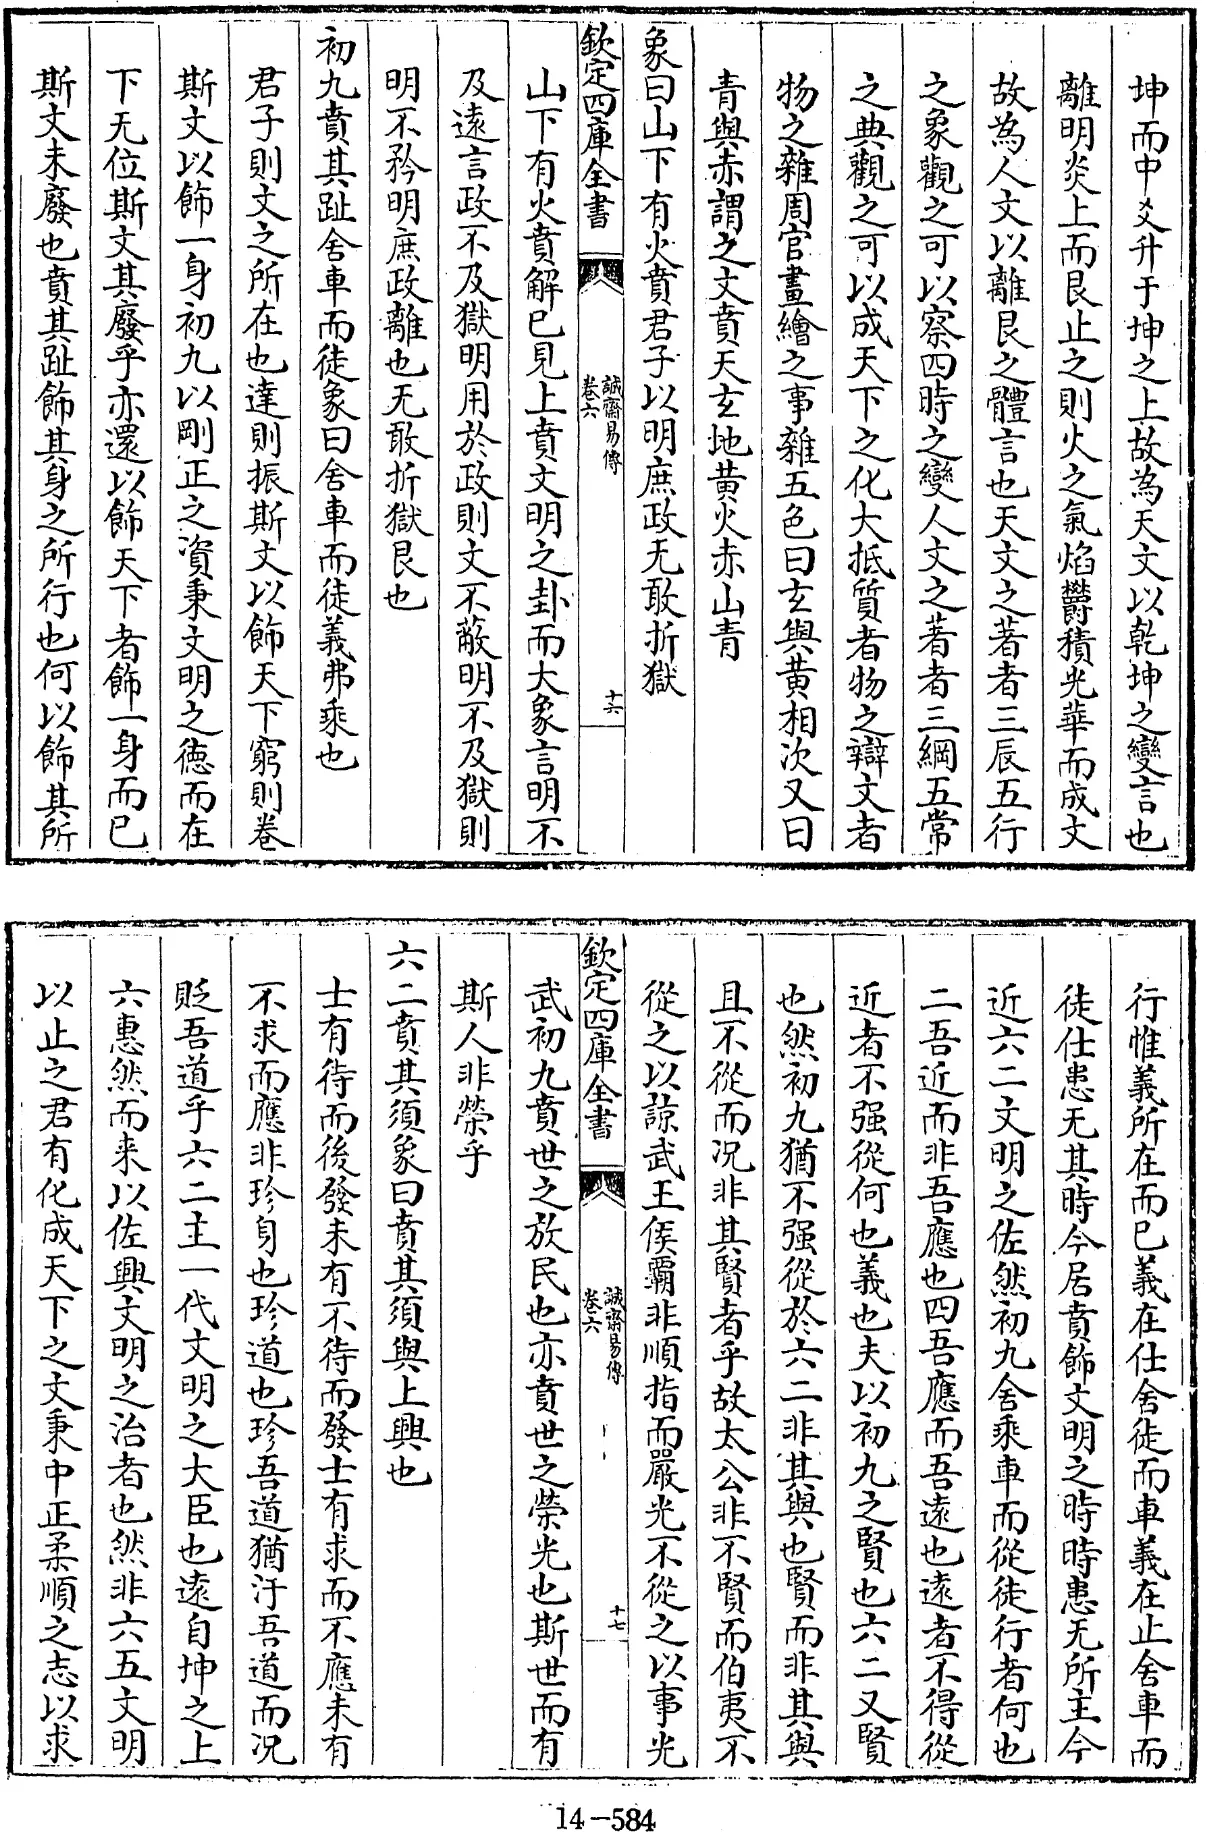 坤而中爻升于坤之上故為天文以乾坤之變言也
離明炎上而艮止之則火之氣焰鬱積光華而成文
故為人文以離艮之體言也天文之著者三辰五行
之象觀之可以察四時之變人文之著者三綱五常
之典觀之可以成天下之化大抵質者物之辯文者
物之雜周官畫繪之事雜五色曰玄與黃相次又曰
青與赤謂之文賁天玄地黃火赤山青
象曰山下有火賁君子以明庶政无敢折獄
欽定四庫全書
誠齋易傳
卷六
十六
山下有火賁解已見上賁文明之卦而大象言明不
及遠言政不及獄明用於政則文不蔽明不及獄則
明不矜明庶政離也无敢折獄艮也
初九賁其趾舍車而徒象曰舍車而徒義弗乘也
君子則文之所在也達則振斯文以飾天下窮則卷
斯文以飾一身初九以剛正之資秉文明之德而在
下无位斯文其廢乎亦還以飾天下者飾一身而已
斯文未廢也賁其趾飾其身之所行也何以飾其所
行惟義所在而已義在仕舍徒而車義在止舍車而
徒仕患无其時今居賁飾文明之時時患无所主今
近六二文明之佐然初九舍乘車而從徒行者何也
二吾近而非吾應也四吾應而吾遠也遠者不得從
近者不强從何也義也夫以初九之賢也六二又賢
也然初九猶不强從於六二非其與也賢而非其與
且不從而况非其賢者乎故太公非不賢而伯夷不
從之以諒武王侯霸非順指而嚴光不從之以事光
欽定四庫全書
誠齋易傳
卷六
十七
武初九賁世之放民也亦賁世之榮光也斯世而有
斯人非榮乎
六二賁其須象曰賁其須與上興也
士有待而後發未有不待而發士有求而不應未有
不求而應非珍身也珍道也珍吾道猶汙吾道而况
貶吾道乎六二主一代文明之大臣也遠自坤之上
六惠然而来以佐興文明之治者也然非六五文明
以止之君有化成天下之文秉中正柔順之志以求
14-584